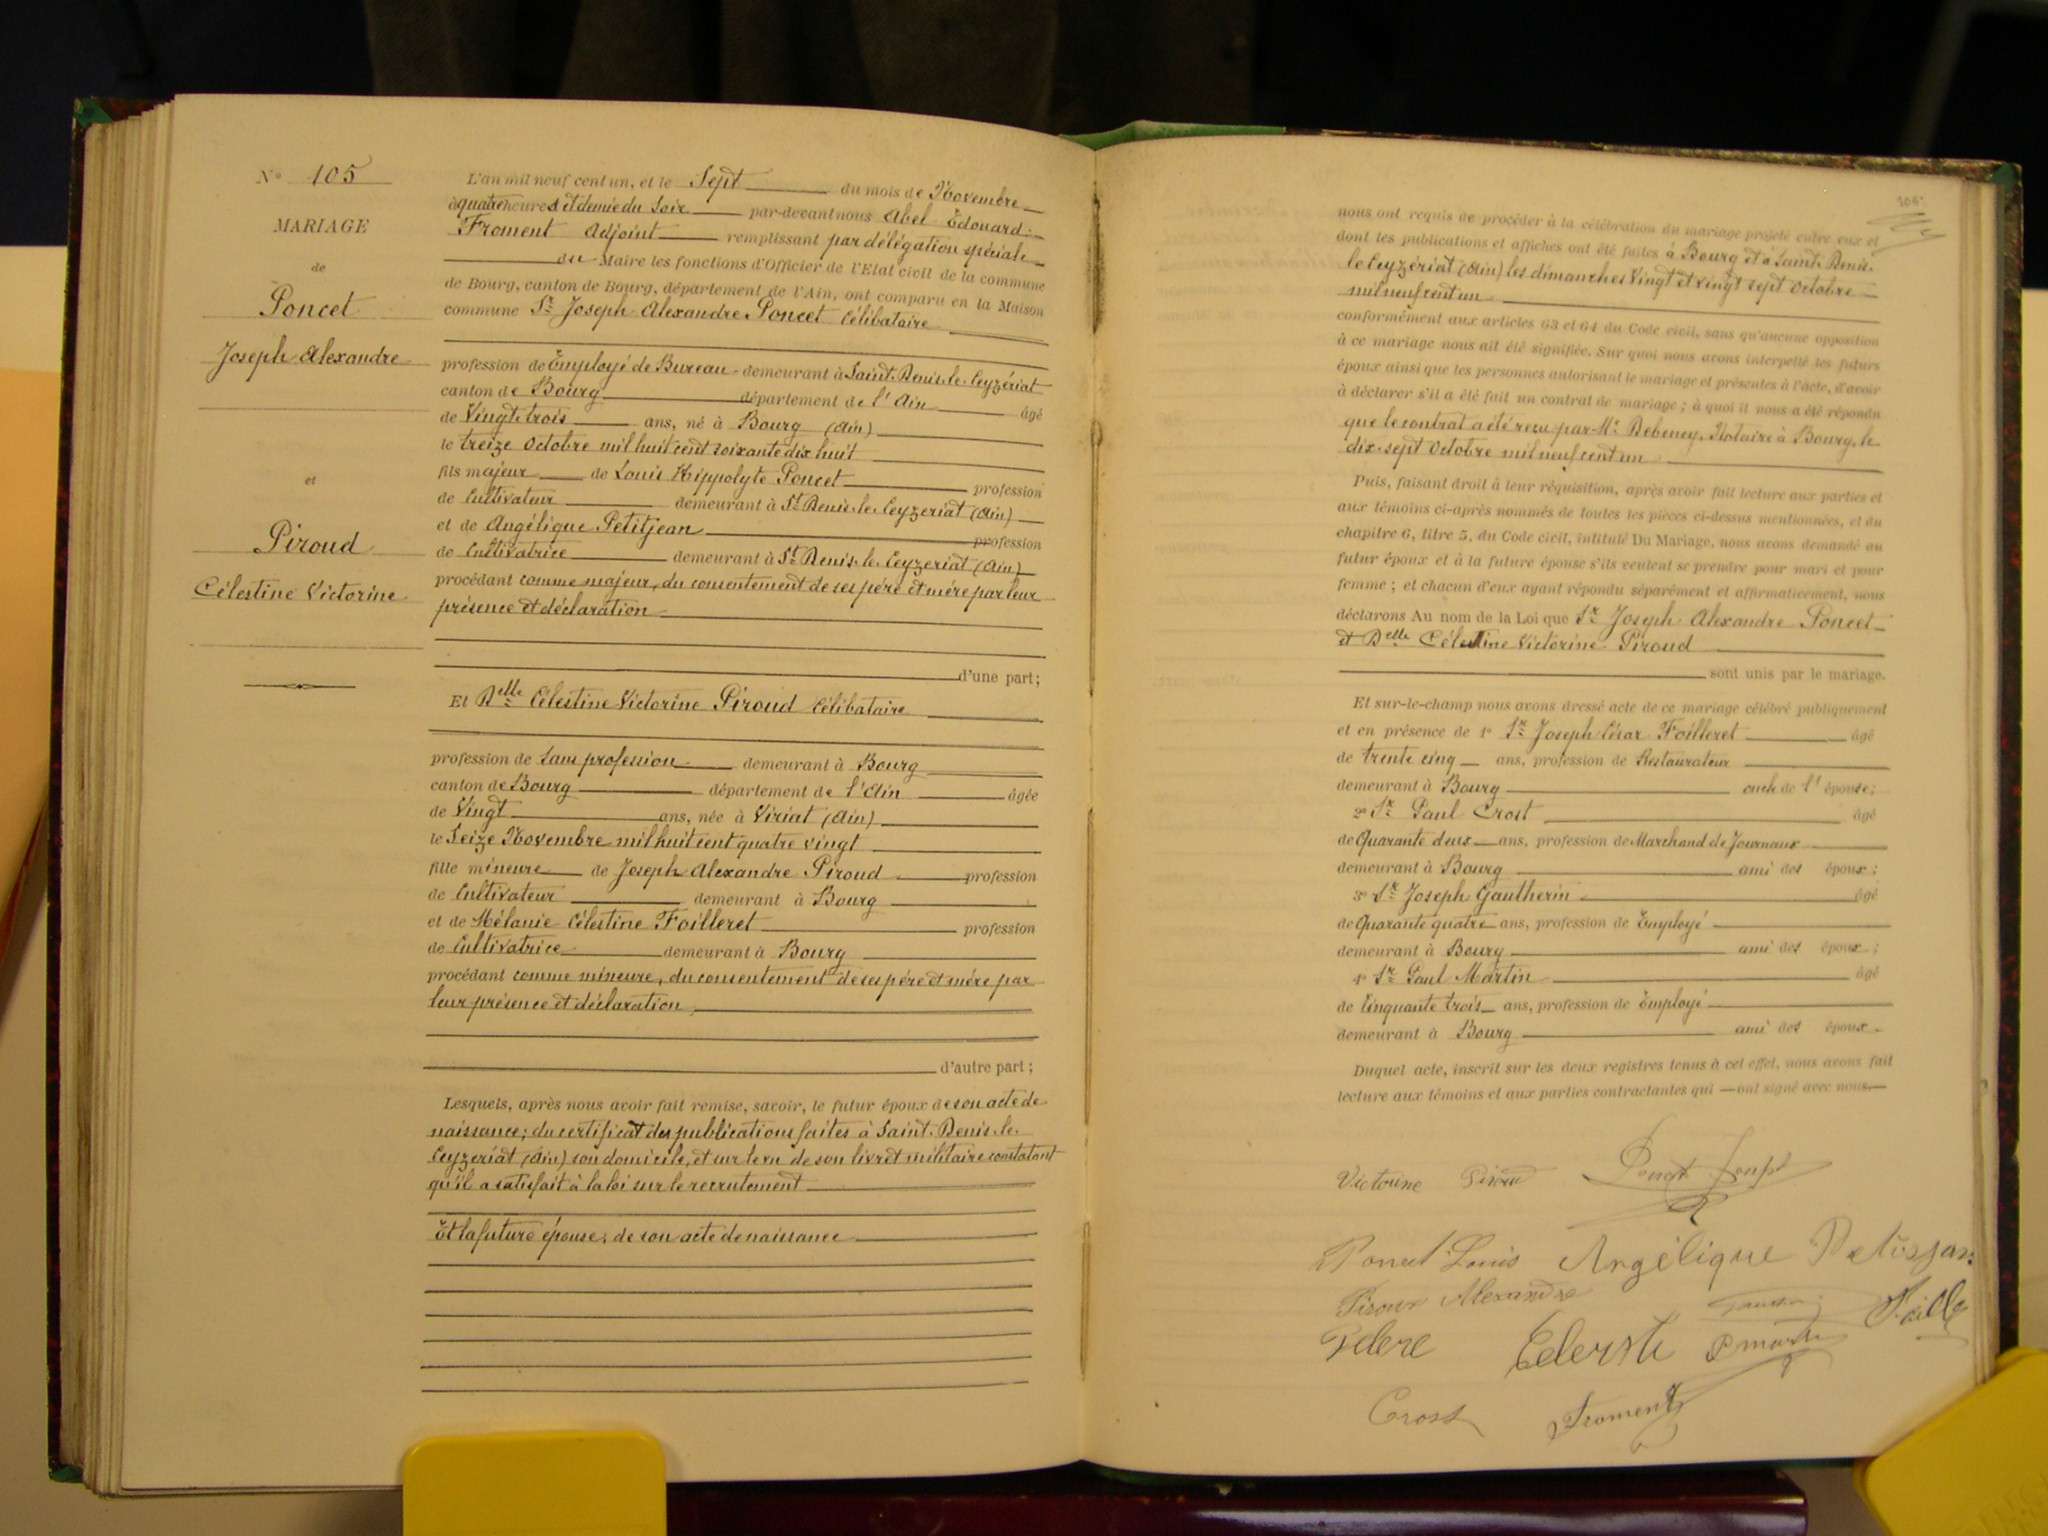 N° 105
MARIAGE
de
Poncet
Joseph Alexandre
et
Piroud
Célestine Victorine
L'an mil neuf cent un, et le Sept du mois de Novembre
à quatre heures et demie du soir par-devant nous Abel Edouard
Froment Adjoint remplissant par délégation spéciale
du Maire les fonctions d'Officier de l'Etat civil de la commune
de Bourg, canton de Bourg, département de l'Ain, ont comparu en la Maison
commune Sr Joseph Alexandre Poncet Célibataire
profession de Employé de Bureau demeurant à Saint-Denis-le-Ceyzériat
canton de Bourg département de l'Ain âgé
de Vingt trois ans, né à Bourg (Ain)
le treize Octobre mil huit cent soixante dix huit
fils majeur de Louis Hippolyte Poncet profession
de Cultivateur demeurant à St Denis-le-Ceyzeriat (Ain)
et de Angélique Petitjean profession
de Cultivatrice demeurant à St Denis-le-Ceyzeriat (Ain)
procédant comme majeur, du consentement de ses père et mère par leur
présence et déclaration
d'une part;
Et Delle Célestine Victorine Piroud Célibataire
profession de Sans profession demeurant à Bourg
canton de Bourg département de l'Ain âgée
de Vingt ans, née à Viriat (Ain)
le Seize Novembre mil huit cent quatre vingt
fille mineure de Joseph Alexandre Piroud profession
de Cultivateur demeurant à Bourg
et de Mélanie Célestine Foilleret profession
de Cultivatrice demeurant à Bourg
procédant comme mineure, du consentement de ses père et mère par
leur présence et déclaration
d'autre part;
Lesquels, après nous avoir fait remise, savoir, le futur époux de son acte de
naissance; du certificat des publications faites à Saint-Denis-le-
Ceyzériat (Ain) son domicile, et sur le vu de son livret militaire constatant
qu'il a satisfait à la loi sur le recrutement
Et la future épouse; de son acte de naissance
nous ont requis de procéder à la célébration du mariage projeté entre eux et
dont les publications et affiches ont été faites à Bourg et à Saint-Denis-
le Ceyzériat (Ain) les dimanches Vingt et vingt sept Octobre
mil neuf cent un
conformément aux articles 63 et 64 du Code civil, sans qu'aucune opposition
à ce mariage nous ait été signifiée. Sur quoi nous avons interpellé les futurs
époux ainsi que les personnes autorisant le mariage et présentes à l'acte, d'avoir
à déclarer s'il a été fait un contrat de mariage; à quoi il nous a été répondu
que le contrat a été reçu par Me Debeney, Notaire à Bourg, le
dix-sept Octobre mil neuf cent un
Puis, faisant droit à leur réquisition, après avoir fait lecture aux parties et
aux témoins ci-après nommés de toutes les pièces ci-dessus mentionnées, et du
chapitre 6, titre 5, du Code civil, intitulé Du Mariage, nous avons demandé au
futur époux et à la future épouse s'ils veulent se prendre pour mari et pour
femme; et chacun d'eux ayant répondu séparément et affirmativement, nous
déclarons Au nom de la Loi que Sr Joseph Alexandre Poncet
et Delle Célestine Victorine Piroud
sont unis par le mariage.
Et sur-le-champ nous avons dressé acte de ce mariage célébré publiquement
et en présence de 1° Sr Joseph César Foilleret âgé
de trente cinq ans, profession de Restaurateur
demeurant à Bourg oncle de l'épouse;
2° Sr Paul Crost âgé
de Quarante deux ans, profession de Marchand de Journaux
demeurant à Bourg ami des époux;
3° Sr Joseph Gautherin âgé
de Quarante quatre ans, profession de Employé
demeurant à Bourg ami des époux;
4° Sr Paul Martin âgé
de Cinquante trois ans, profession de Employé
demeurant à Bourg ami des époux
Duquel acte, inscrit sur les deux registres tenus à cet effet, nous avons fait
lecture aux témoins et aux parties contractantes qui ont signé avec nous.
Victorine Piroud Poncet Joseph
Poncet Louis Angélique Petitjean
Piroux Alexandre
P martin
Crost Froment